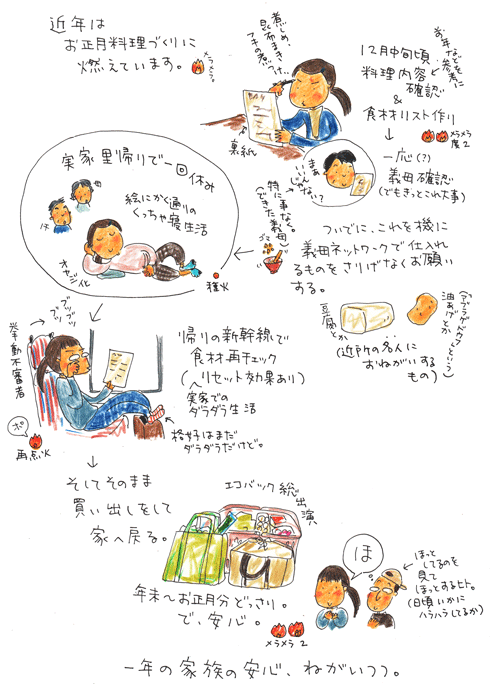 近年は
お正月料理づくりに
燃えています。
メラメラ。
煮しめ、
昆布まき、
フキの煮つけ、
裏紙
お年など参考に
12月中旬頃
料理内容
確認
&
食材リスト作り
メラメラ
度2
一応(?)
義母確認
(でもきっとこれ大事)
まあ
いいじゃ
ない?
特に事なく。
(できた義母)
ゴマ
ついでに、これを機に
義母ネットワークで仕入れ
るものをさりげなくお願い
する。
豆腐
とか
油あげとか
(近所の名人に
おねがいする
もの)
実家里帰りで一回休み
絵にかく通りの
くっちゃ寝生活
オヤジィと
種火
ブツブツ
ブツ
挙動不審者
ポ
再点火
帰りの新幹線で
食材再チェック
(リセット効果あり)
実家での
ダラダラ生活
格好はまだ
ダラダラだけど。
そしてそのまま
買い出しをして
家へ戻る。
エコバック総出演
年末〜お正月分どっさり。
で、安心。
メラメラ2
ほ
ほっと
してるのを
見て
ほっとするヒト。
(日頃いかに
ハラハラしてるか)
一年の家族の安心、ねがいつつ。